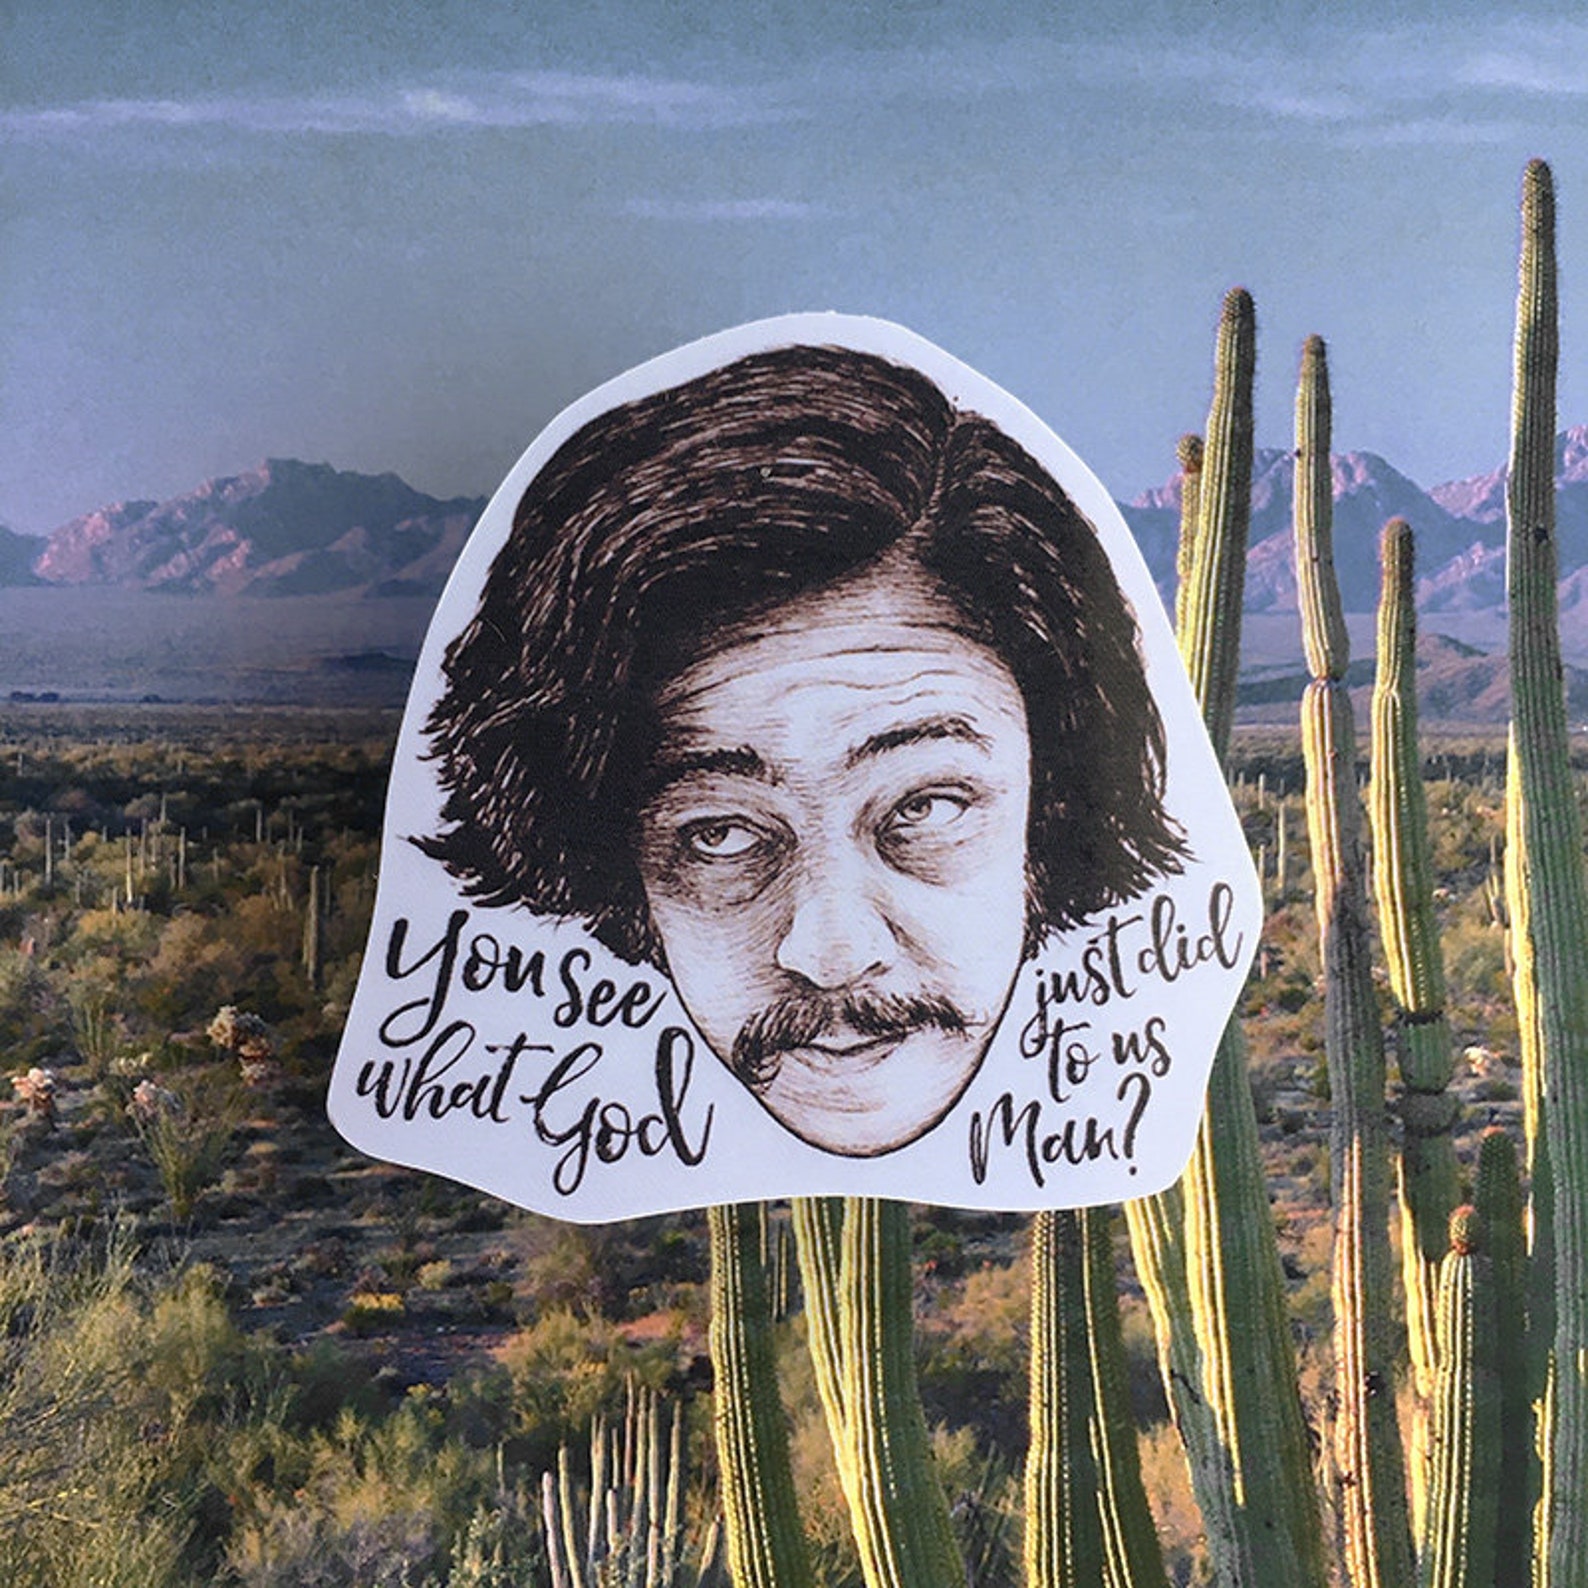 You see
what God
just did
to us
Man?